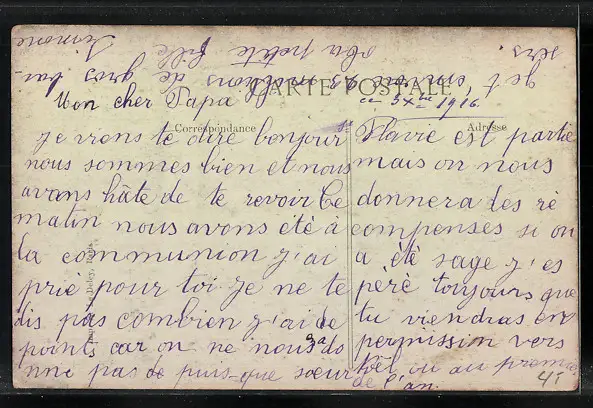 CARTE POSTALE
Correspondance
Adresse
ce 3 Xbre 1916
Mon cher Papa
je viens te dire bonjour
nous sommes bien et nous
avons hâte de te revoir Ce
matin nous avons été à
la communion j'ai
prié pour toi Je ne te
dis pas combien j'ai de
points car on ne nous
nne pas de puis-que sœur
Flavie est partie
mais on nous
donnera les ré
compenses si on
a été sage j'es
père toujours que
tu viendras en
permission vers
Noël, ou au premier
de l'an.
je t'envoie des millions de gros bai-
sers.
ta petite fille
Simone
41